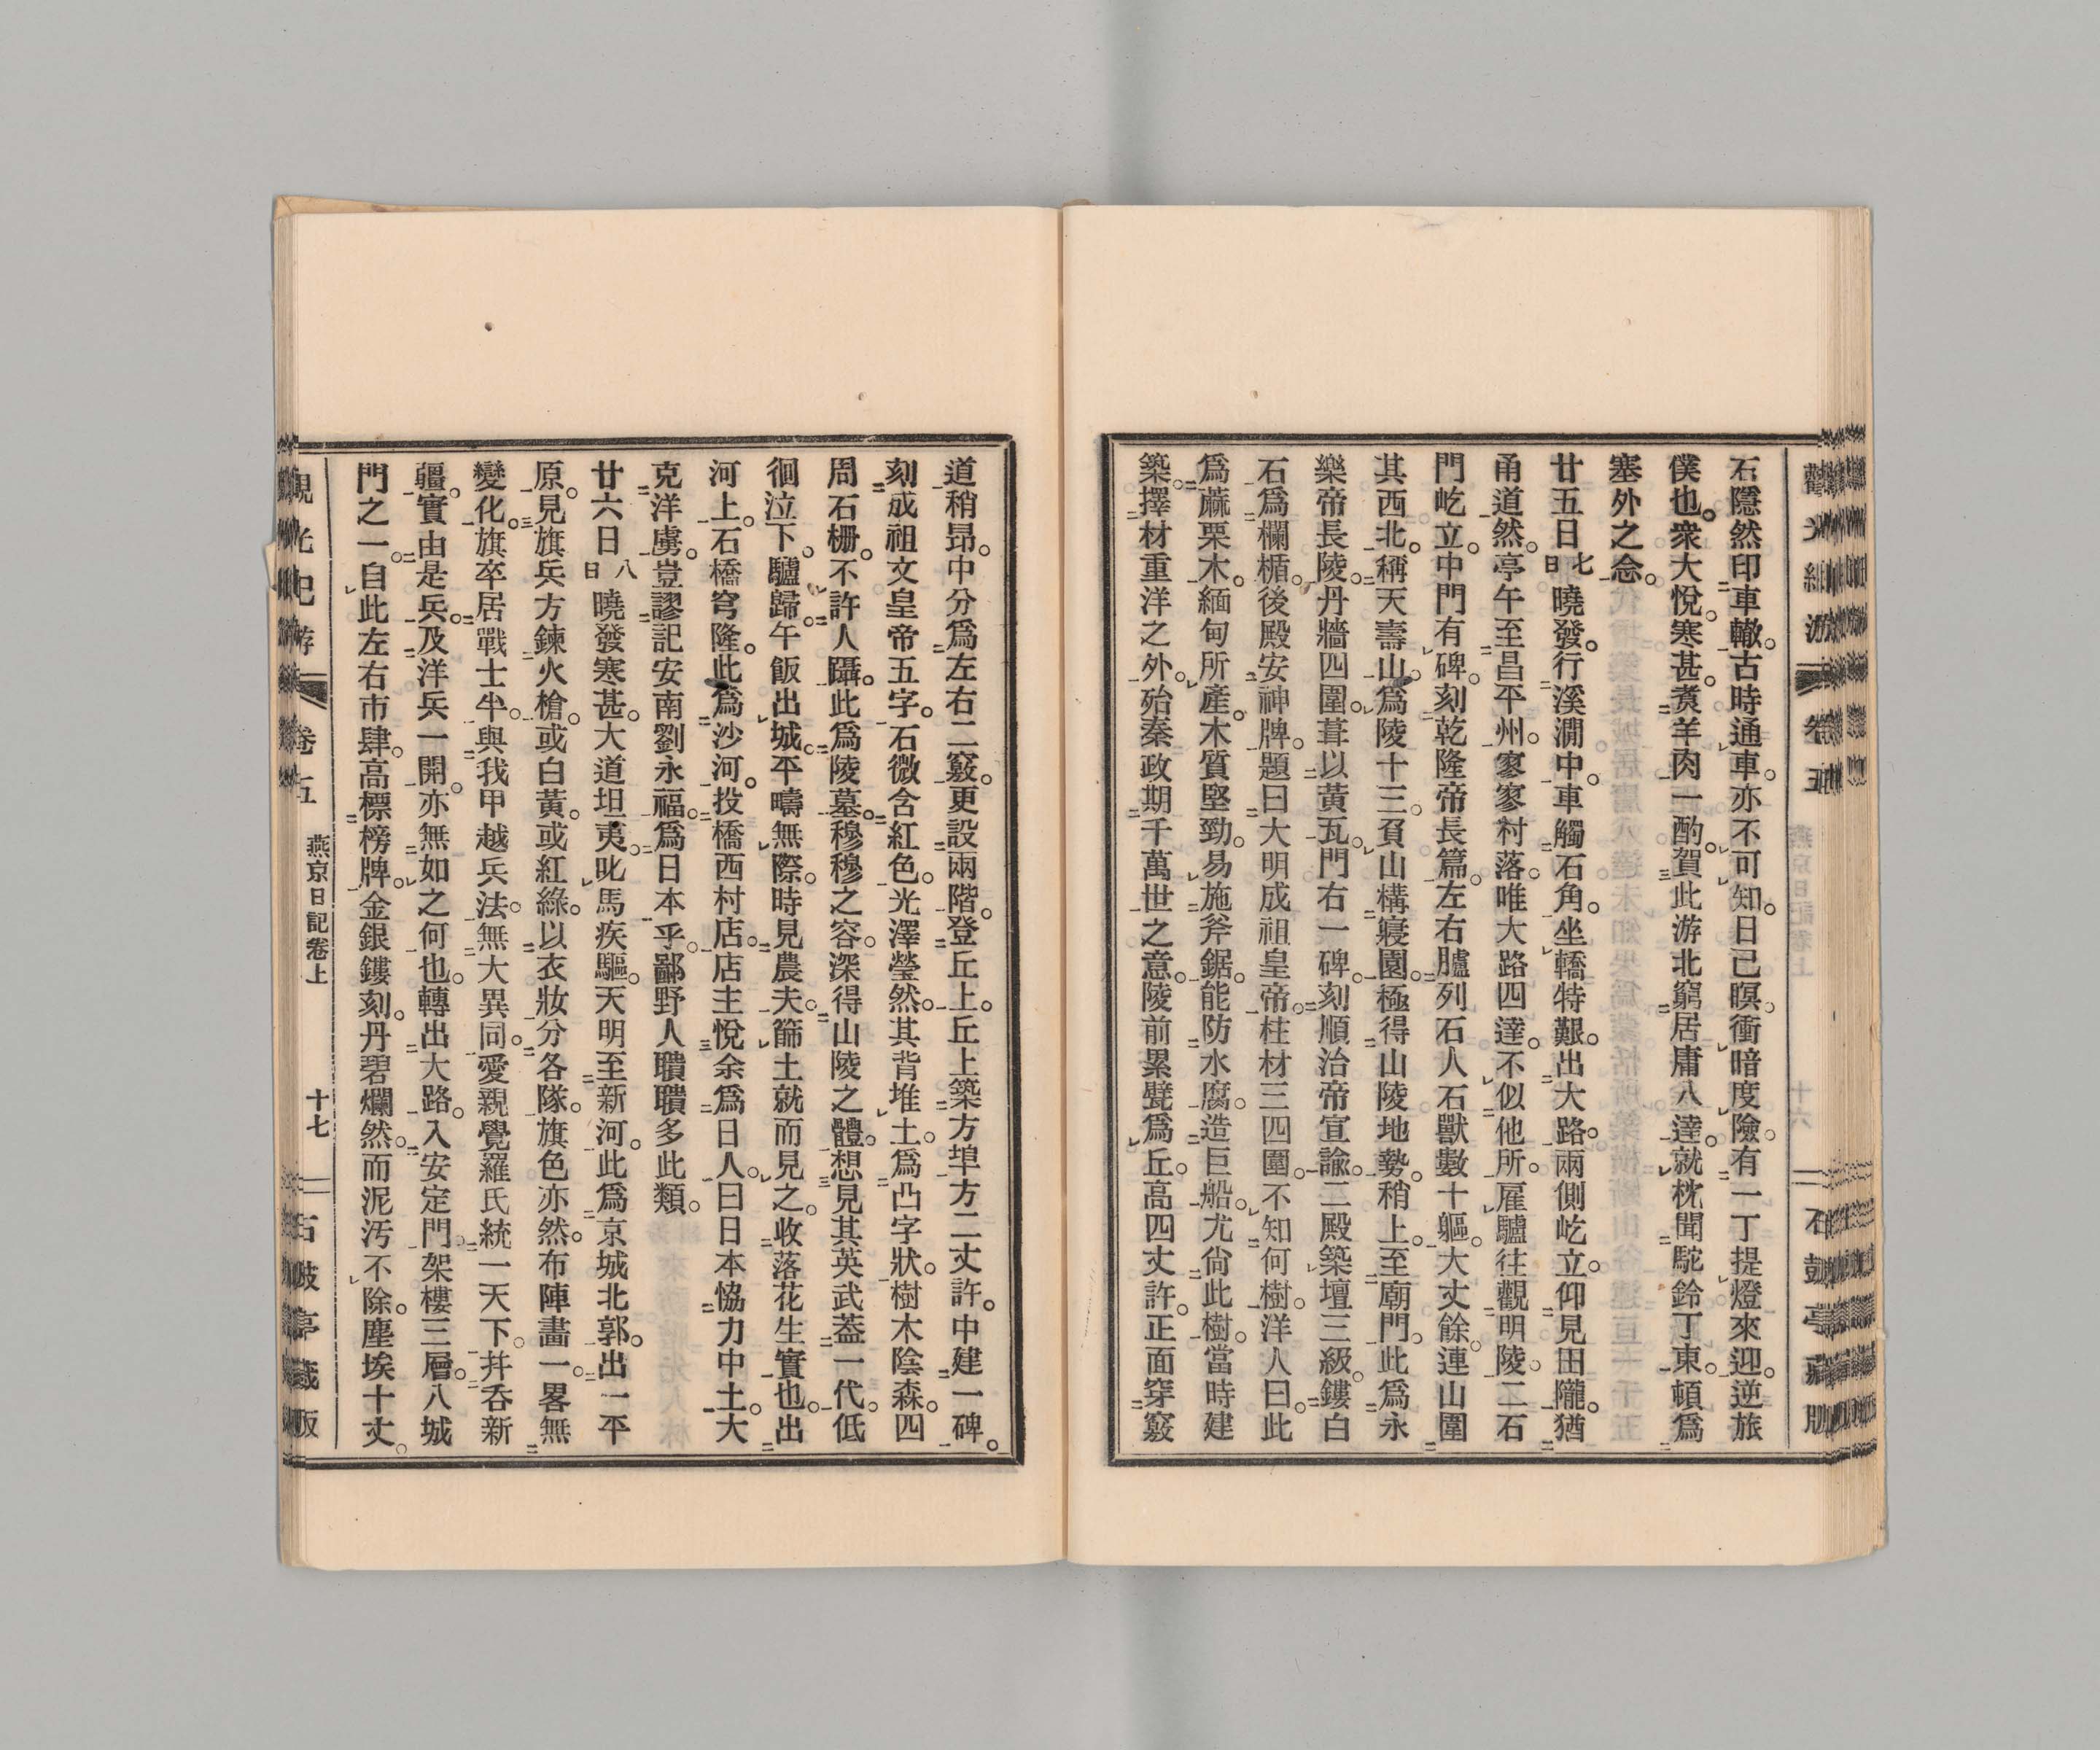 石隱然印車轍。古時通車。亦不可知。日已暝。衝暗度險。有一丁提燈來迎。逆旅
僕也。衆大悅。寒甚。煑羊肉一酌。賀此游北窮居庸八達。就枕聞駝鈴丁東。頓爲
塞外之念。
廿五日七日曉發。行溪澗中。車觸石角。坐轎特艱。出大路。兩側屹立。仰見田隴。猶
甬道然。亭午至昌平州。寥寥村落。唯大路四達。不似他所。雇驢往觀明陵。二石
門屹立。中門有碑。刻乾隆帝長篇。左右臚列石人石獸數十軀。大丈餘。連山圍
其西北。稱天壽山。爲陵十三。負山構寢園。極得山陵地勢。稍上。至廟門。此爲永
樂帝長陵。丹牆四圍。葺以黃瓦。門右一碑。刻順治帝宣諭。二殿築壇三級。鏤白
石爲欄楯。後殿安神牌。題曰大明成祖皇帝。柱材三四圍。不知何樹。洋人曰。此
爲蔴栗木。緬甸所產。木質堅勁。易施斧鋸。能防水腐。造巨船。尤尙此樹。當時建
築。擇材重洋之外。殆秦政期千萬世之意。陵前累甓爲丘。高四丈許。正面穿竅
道稍昂。中分爲左右二竅。更設兩階。登丘上。丘上築方埠方二丈許。中建一碑。
刻成祖文皇帝五字。石微含紅色。光澤瑩然。其背堆土。爲凸字狀。樹木陰森。四
周石柵。不許人躡。此爲陵墓。穆穆之容。深得山陵之體。想見其英武蓋一代。低
徊泣下。驢歸。午飯出城。平疇無際。時見農夫。篩土就而見之。收落花生實也。出
河上。石橋穹隆。此爲沙河。投橋西村店。店主悅余爲日人。曰日本恊力中土。大
克洋虜。豈謬記安南劉永福。爲日本乎。鄙野人聵聵多此類。
廿六日八日曉發寒甚。大道坦夷。叱馬疾驅。天明至新河。此爲京城北郭。出一平
原。見旗兵方鍊火槍。或白黃。或紅綠。以衣妝分各隊。旗色亦然。布陣畫一。畧無
變化。旗卒居戰士半。與我甲越兵法。無大異同。愛親覺羅氏統一天下。幷呑新
疆。實由是兵。及洋兵一開。亦無如之何也。轉出大路。入安定門。架樓三層。八城
門之一。自此左右市肆。高標榜牌。金銀鏤刻。丹碧爛然。而泥汚不除。塵埃十丈。
卷五
燕京日記卷上
十七